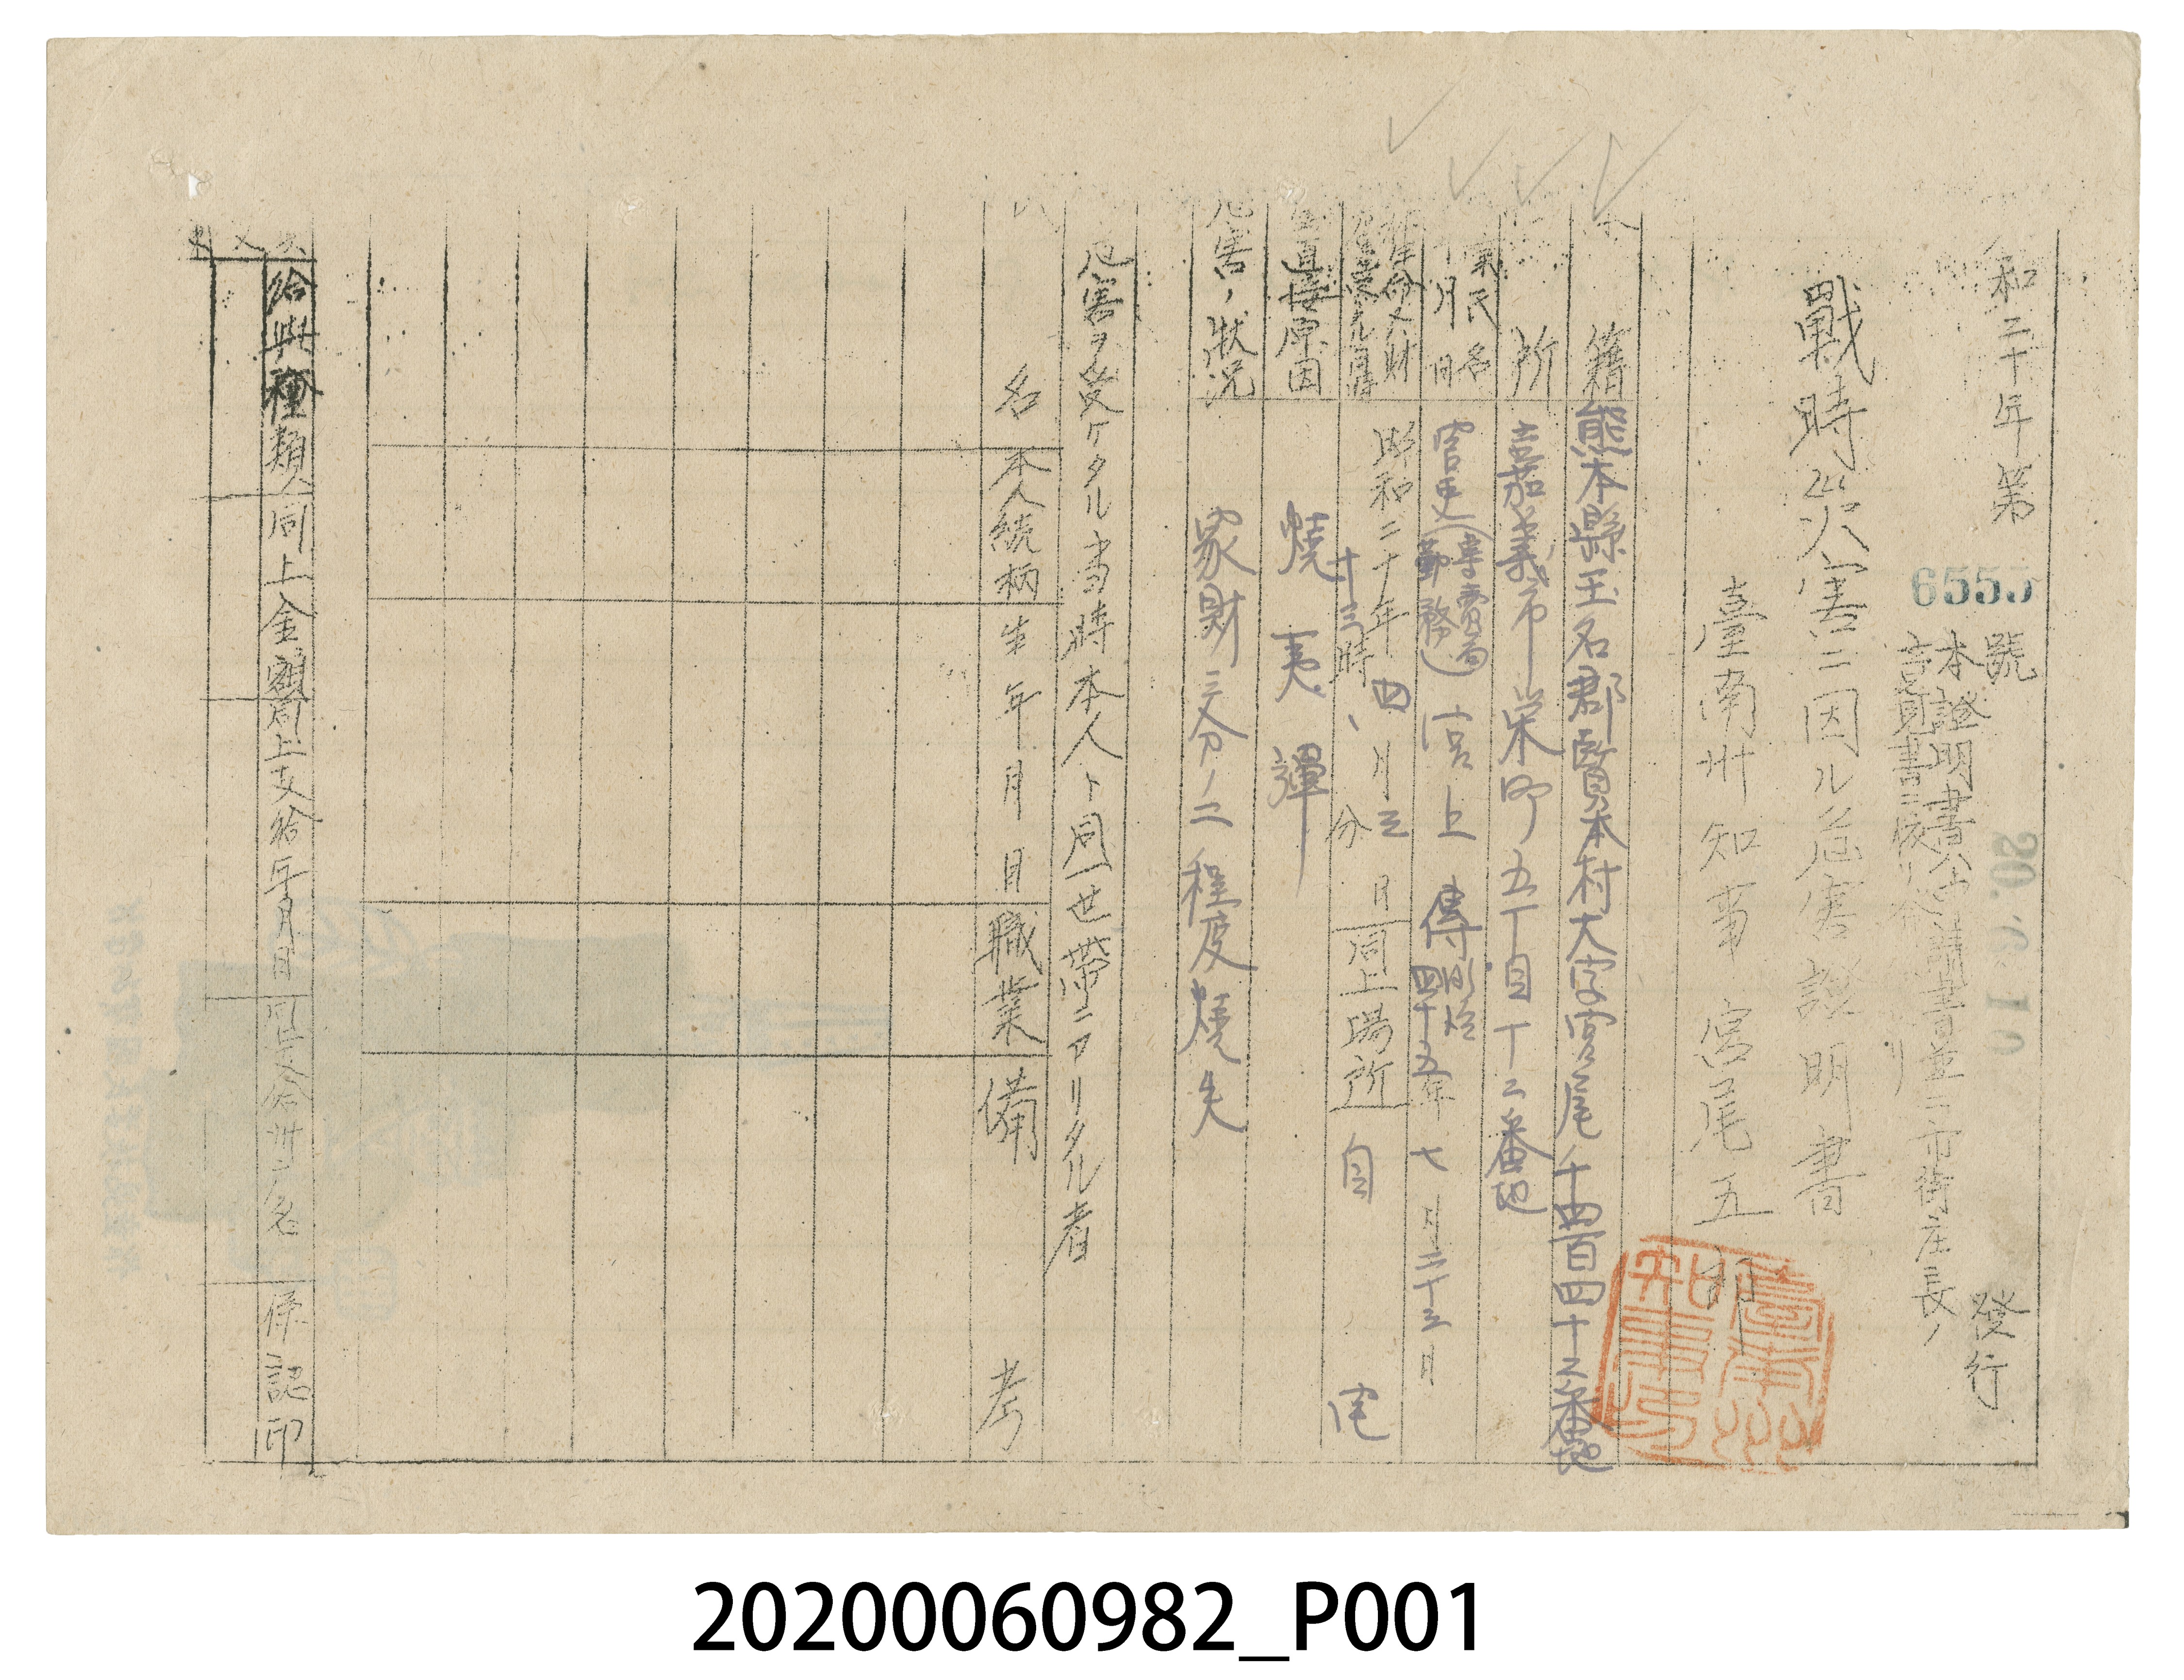 和二十年第 6555 號 發行
20. 6. 10
本證明書八申請書並ニ市街庄長ノ
意見書ニ依リ
戰時災害ニ因ル危害證明書
臺南州知事 宮尾五郎
臺南州知事印
籍 熊本縣玉名郡賢木村大字宮尾千四百四十二番地
所 嘉義市榮町五丁目十二番地
業氏名 官吏(專賣局勤務) 宮上傳
月日 明治四十五年七月二十三日
生命又財
昭和二十年四月三日
十三時、分
同上場所 自宅
直接原因 燒夷彈
危害ノ狀況 家財三分ノ二程度燒失
危害ヲ受ケタル當時本人ト同一世帶ニアリタル者
名 本人続柄 生年月日 職業 備考
給與種類 同上金額 同上支給年月日 同支給州廳名 係認印
20200060982_P001